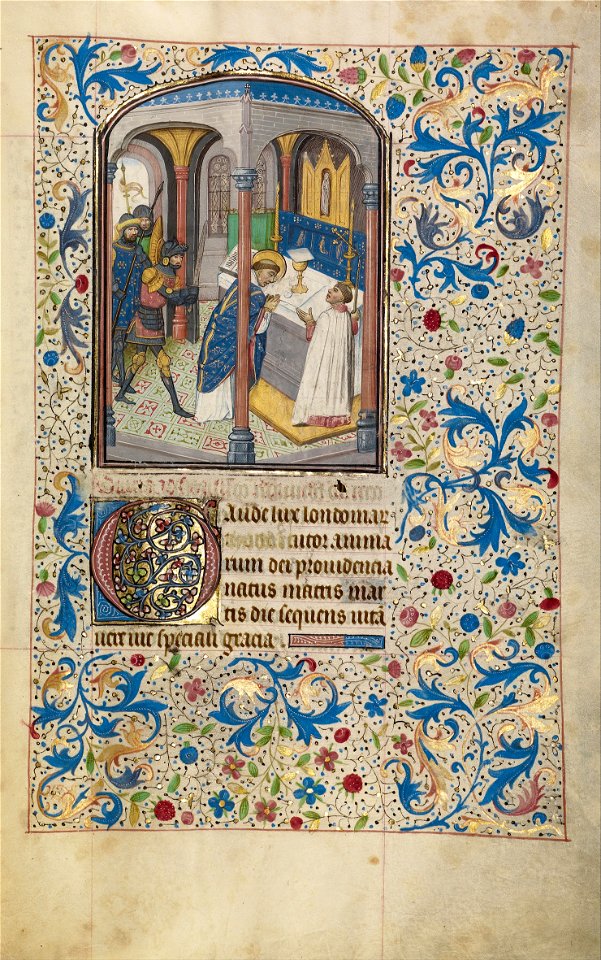 Gaude lux londoniar
tutor anima
rum dei prouidencia
natus matris mar
tis die sequens uita
speciali gracia